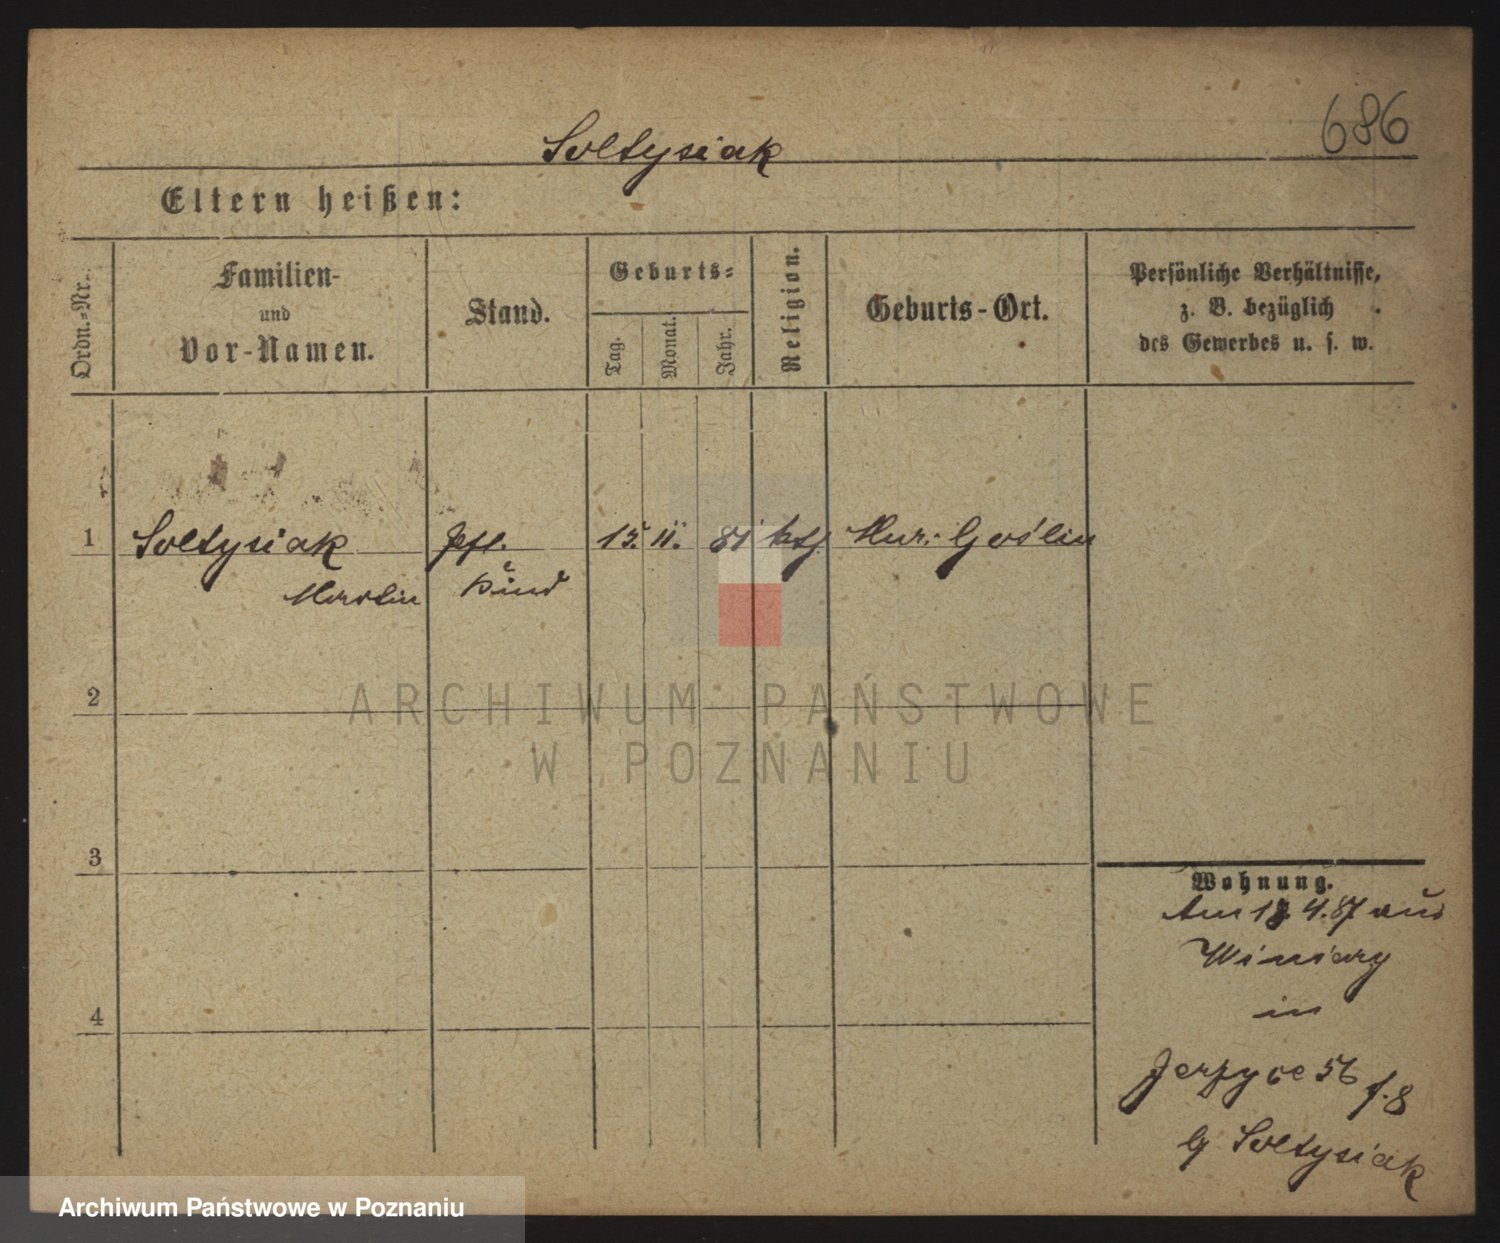 686
Soltysiak
Eltern heißen:
Ordn.-Nr.
Familien-
und
Vor-Namen.
Stand.
Geburts-
Tag.
Monat.
Jahr.
Religion.
Geburts-Ort.
Persönliche Verhältnisse,
z. B. bezüglich
des Gewerbes u. s. w.
1 Soltysiak Pfl. 15. 11. 81 ktf. Mur. Goślin
Martin Kind
2
3
4
Wohnung.
Am 4.87 aus
Winiary
in
Jerzyce 56 f. 8
b/ Soltysiak
ARCHIWUM PAŃSTWOWE
W POZNANIU
Archiwum Państwowe w Poznaniu